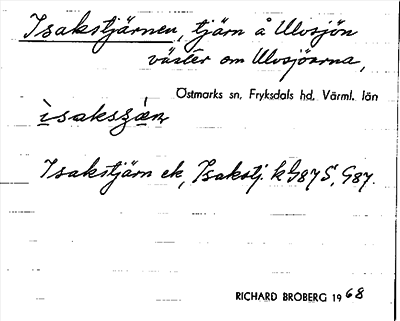 Isakstjärnen, tjärn å Ulvsjön
väster om Ulvsjöarna,
Östmarks sn, Fryksdals hd, Värml. län
ìsakszǽn,
Isakstjärn ek, Isakstj. kG87S, G87.
RICHARD BROBERG 1968